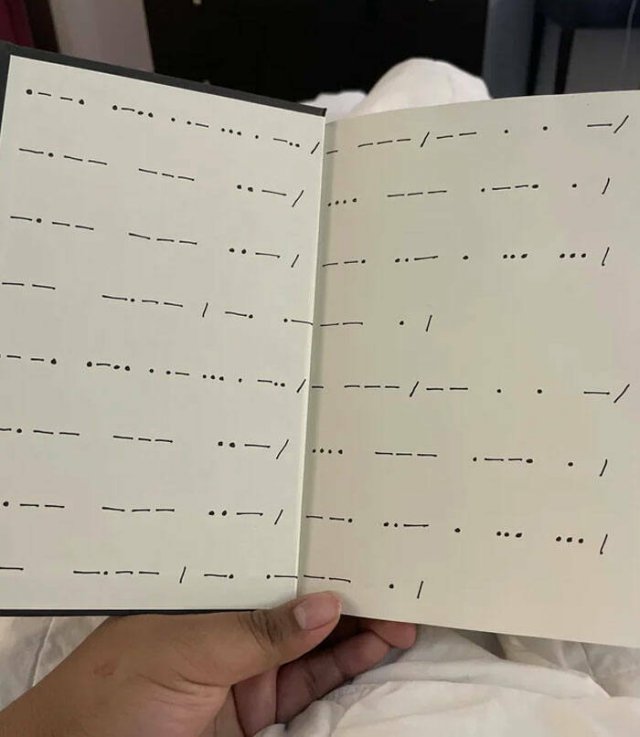 .--. .-.. . .- ... . -../ - ---/-- . . -/
-.-- --- ..-/ .... --- .--. . /
-.-- --- ..-/ --. ..- . ... ... /
-- -.-- / -. .- -- . /
--. .-.. . .- ... . -../ - ---/-- . . -/
-.-- --- ..-/ .... --- .--. . /
.-- --- ..-/ --. ..- . ... ... /
- -.-- / -. .- -- . /